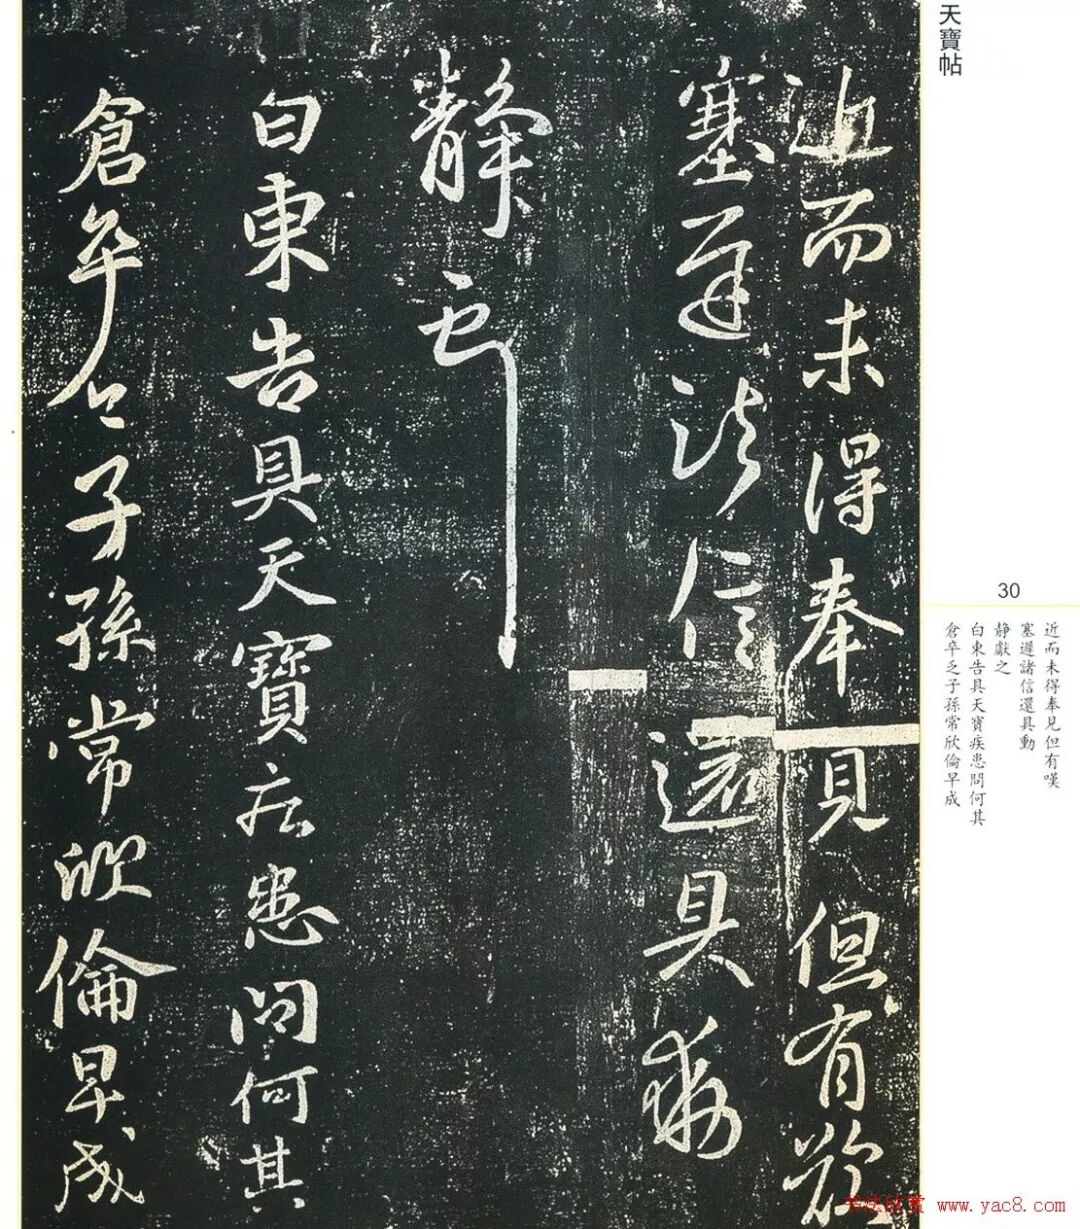 天寶帖
30
近而未得奉見但有嘆
塞遲諸信還具動
靜獻之
白東告具天寶疾患問何其
倉卒乏子孫常欣倫早成
近而未得奉見但有歎
塞遲諸信還具動
靜獻之
白東告具天寶疾患問何其
倉卒乏子孫常欣倫早成
书法欣赏 www.yac8.com